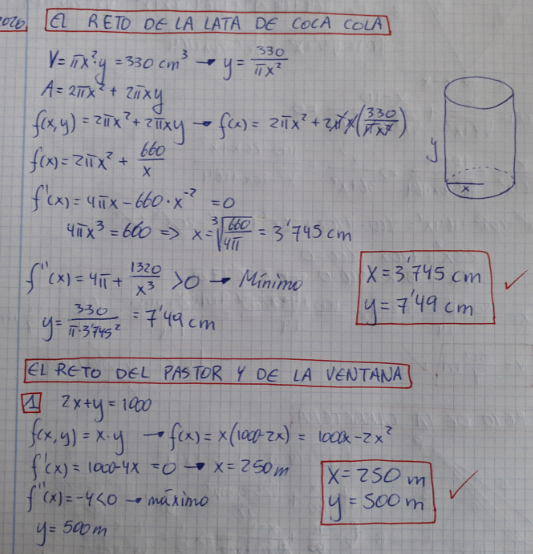 2026,
EL RETO DE LA LATA DE COCA COLA
V = πx²·y = 330 cm³ → y = 330/πx²
A = 2πx² + 2πxy
f(x,y) = 2πx² + 2πxy → f(x) = 2πx² + 2πx(330/πx²)
f(x) = 2πx² + 660/x
y
x
f'(x) = 4πx - 660·x⁻² = 0
4πx³ = 660 => x = ∛(660/4π) = 3'745 cm
f''(x) = 4π + 1320/x³ > 0 → Mínimo
x = 3'745 cm
y = 7'49 cm
y = 330/π·3'745² = 7'49 cm
EL RETO DEL PASTOR Y DE LA VENTANA
1 2x+y = 1000
f(x,y) = x·y → f(x) = x(1000-2x) = 1000x - 2x²
f'(x) = 1000-4x = 0 → x = 250 m
x = 250 m
y = 500 m
f''(x) = -4<0 → máximo
y = 500 m